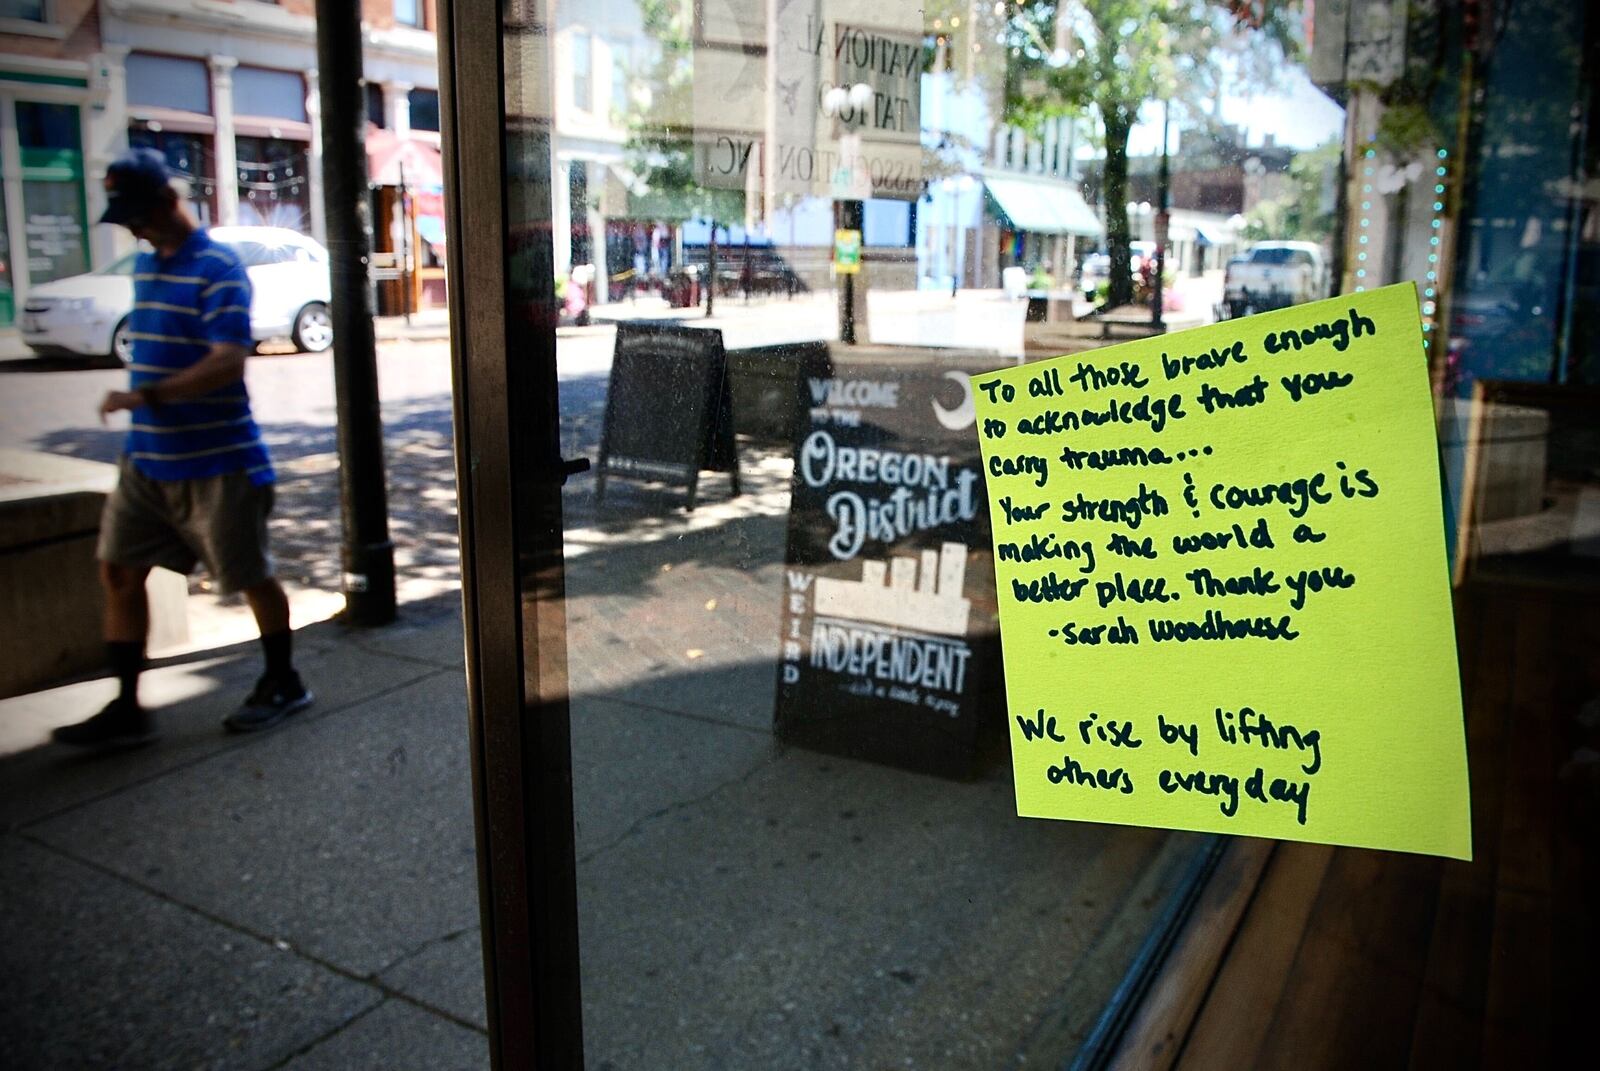 NATIONAL
TATTOO
ASSOCIATION INC.
WELCOME
TO THE
OREGON
District
WEIRD
INDEPENDENT
To all those brave enough
to acknowledge that you
carry trauma...
Your strength & courage is
making the world a
better place. Thank you
-Sarah Woodhouse
We rise by lifting
others everyday